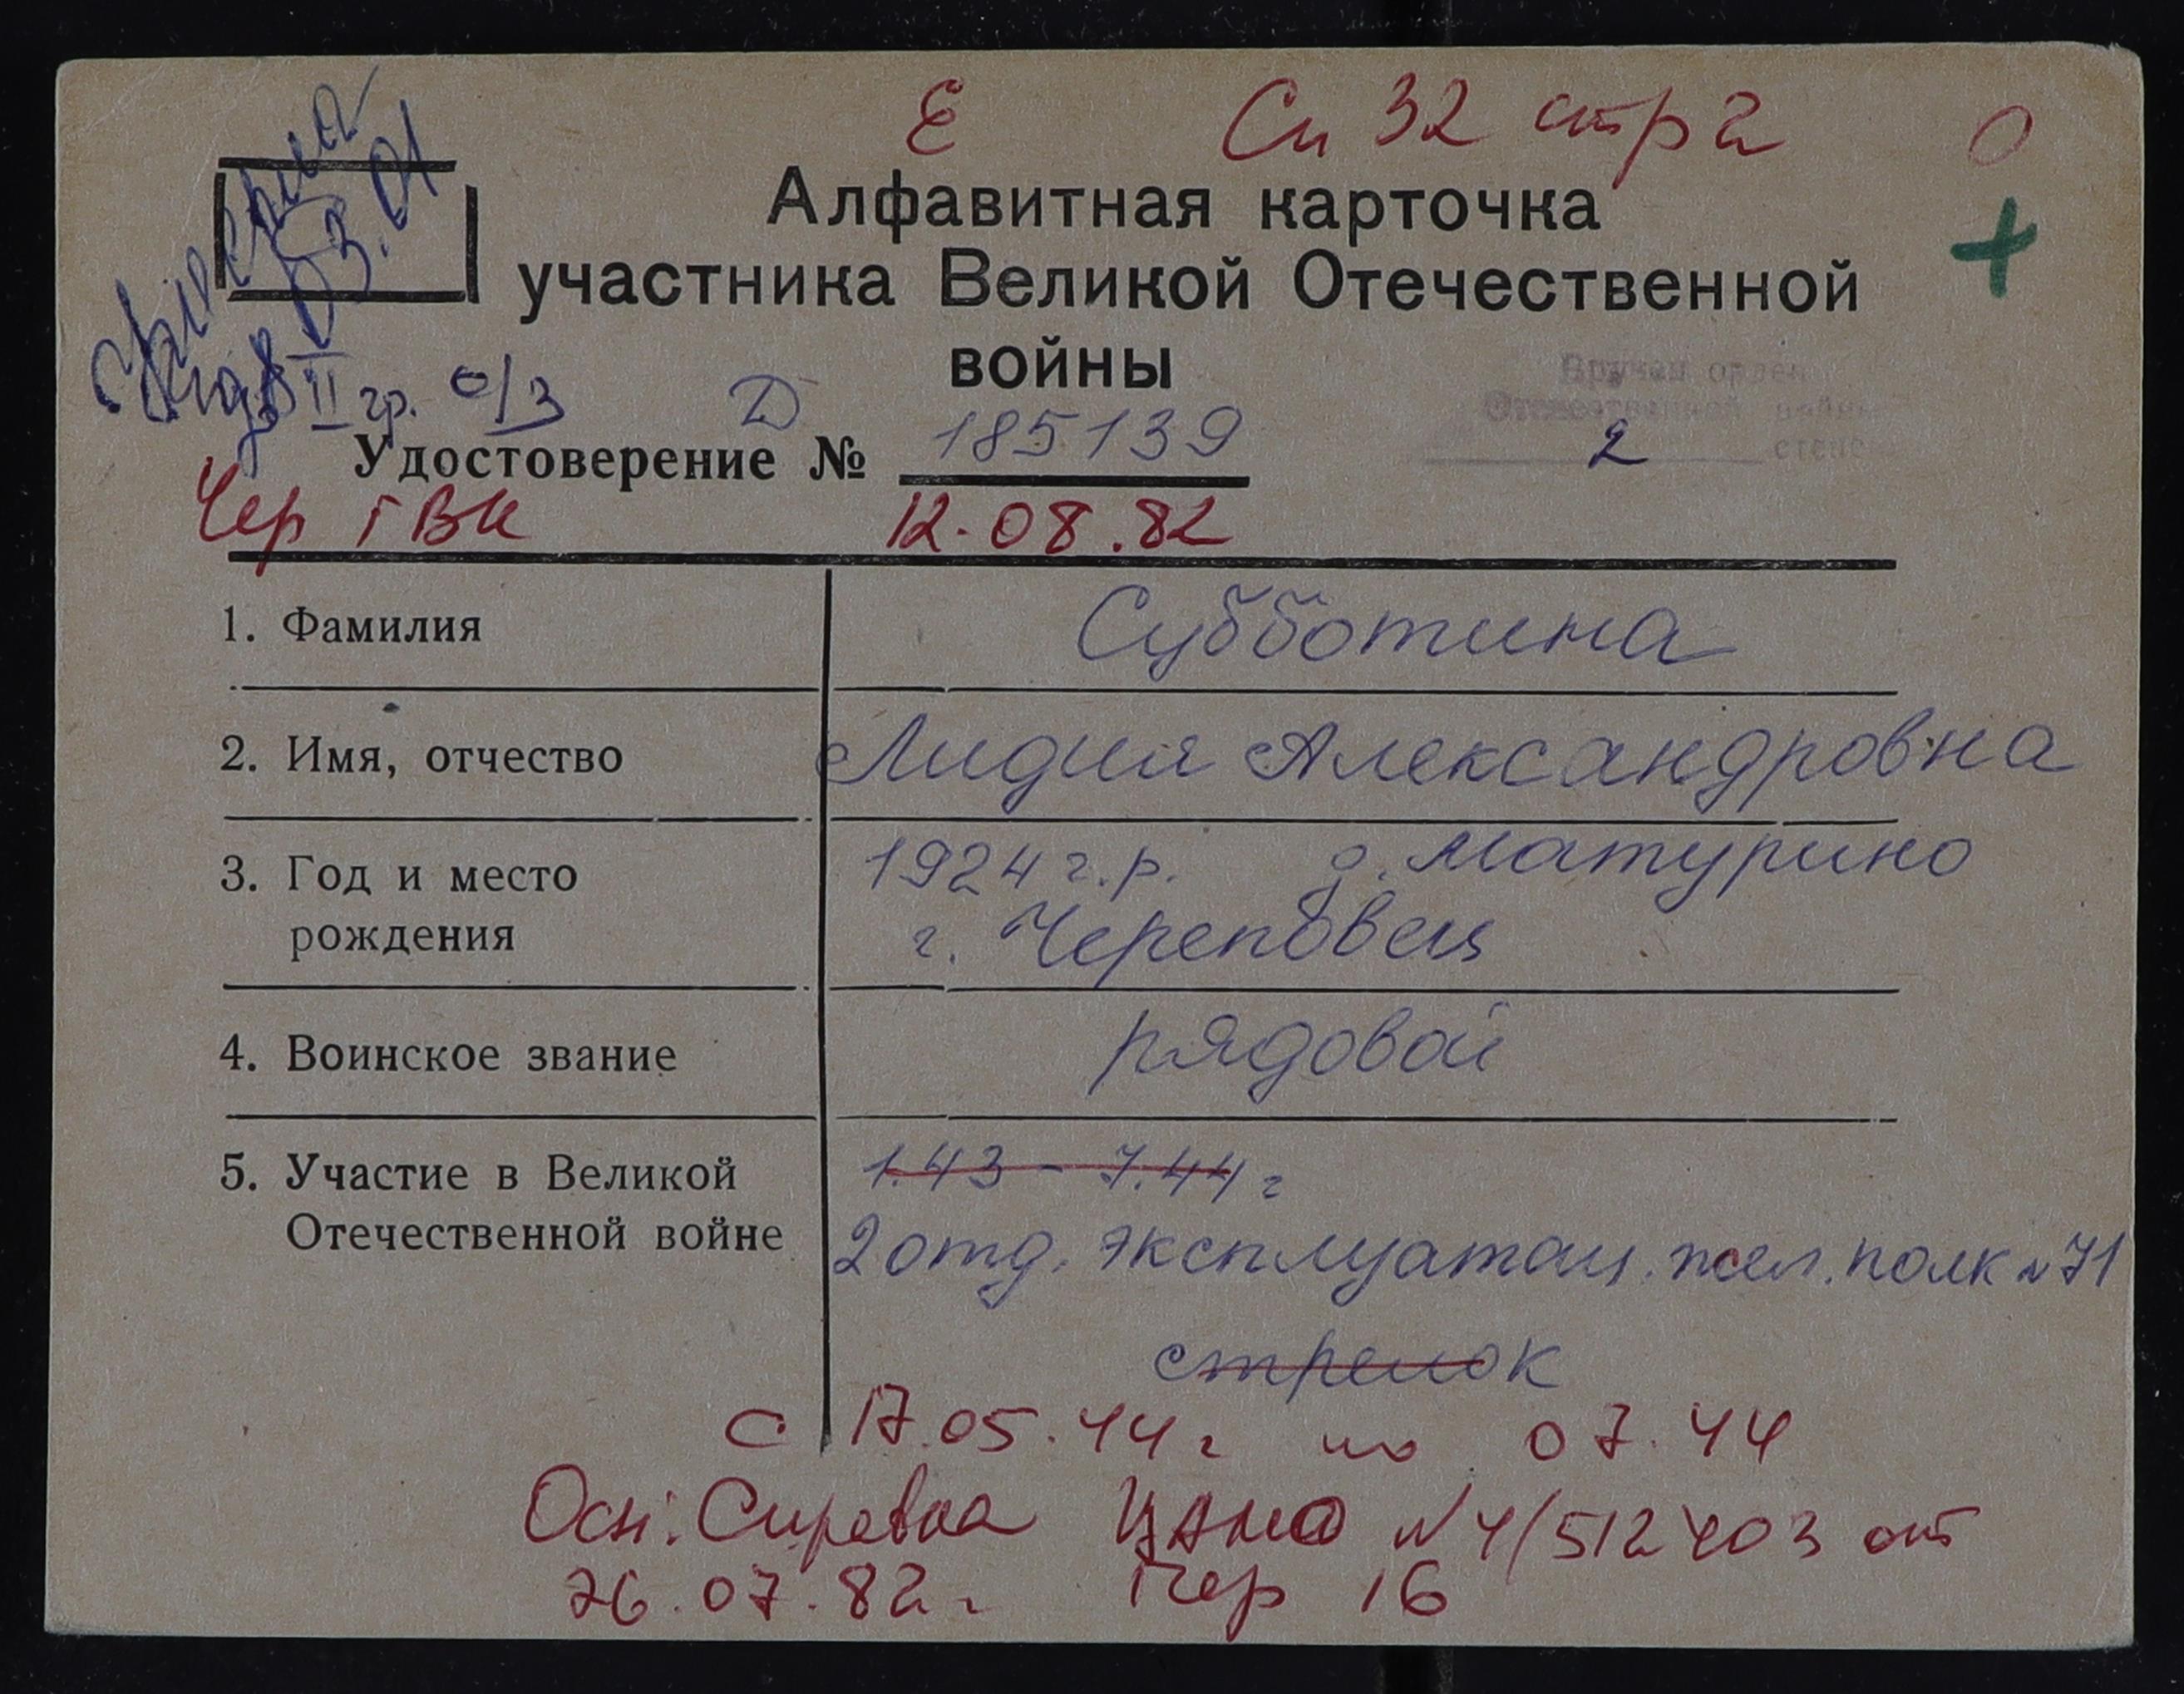 Е Сп 32 стр 2 0
Алфавитная карточка
участника Великой Отечественной
войны
+
03.01
II гр. о/з Д
Вручен орден
Отечественной войны
2 степе
Удостоверение № 185139
Чер ГВК 12.08.82
1. Фамилия Субботина
2. Имя, отчество Лидия Александровна
3. Год и место 1924 г.р. д. Матурино
рождения г. Череповец
4. Воинское звание рядовой
5. Участие в Великой 1.43 - 7.44 г
Отечественной войне 2 отд. эксплуатац. жел. полк N 71
стрелок
с 17.05.44 г по 07.44
Осн: Справка ЦАМО N 4/512403 от
26.07.82 г Пер 16